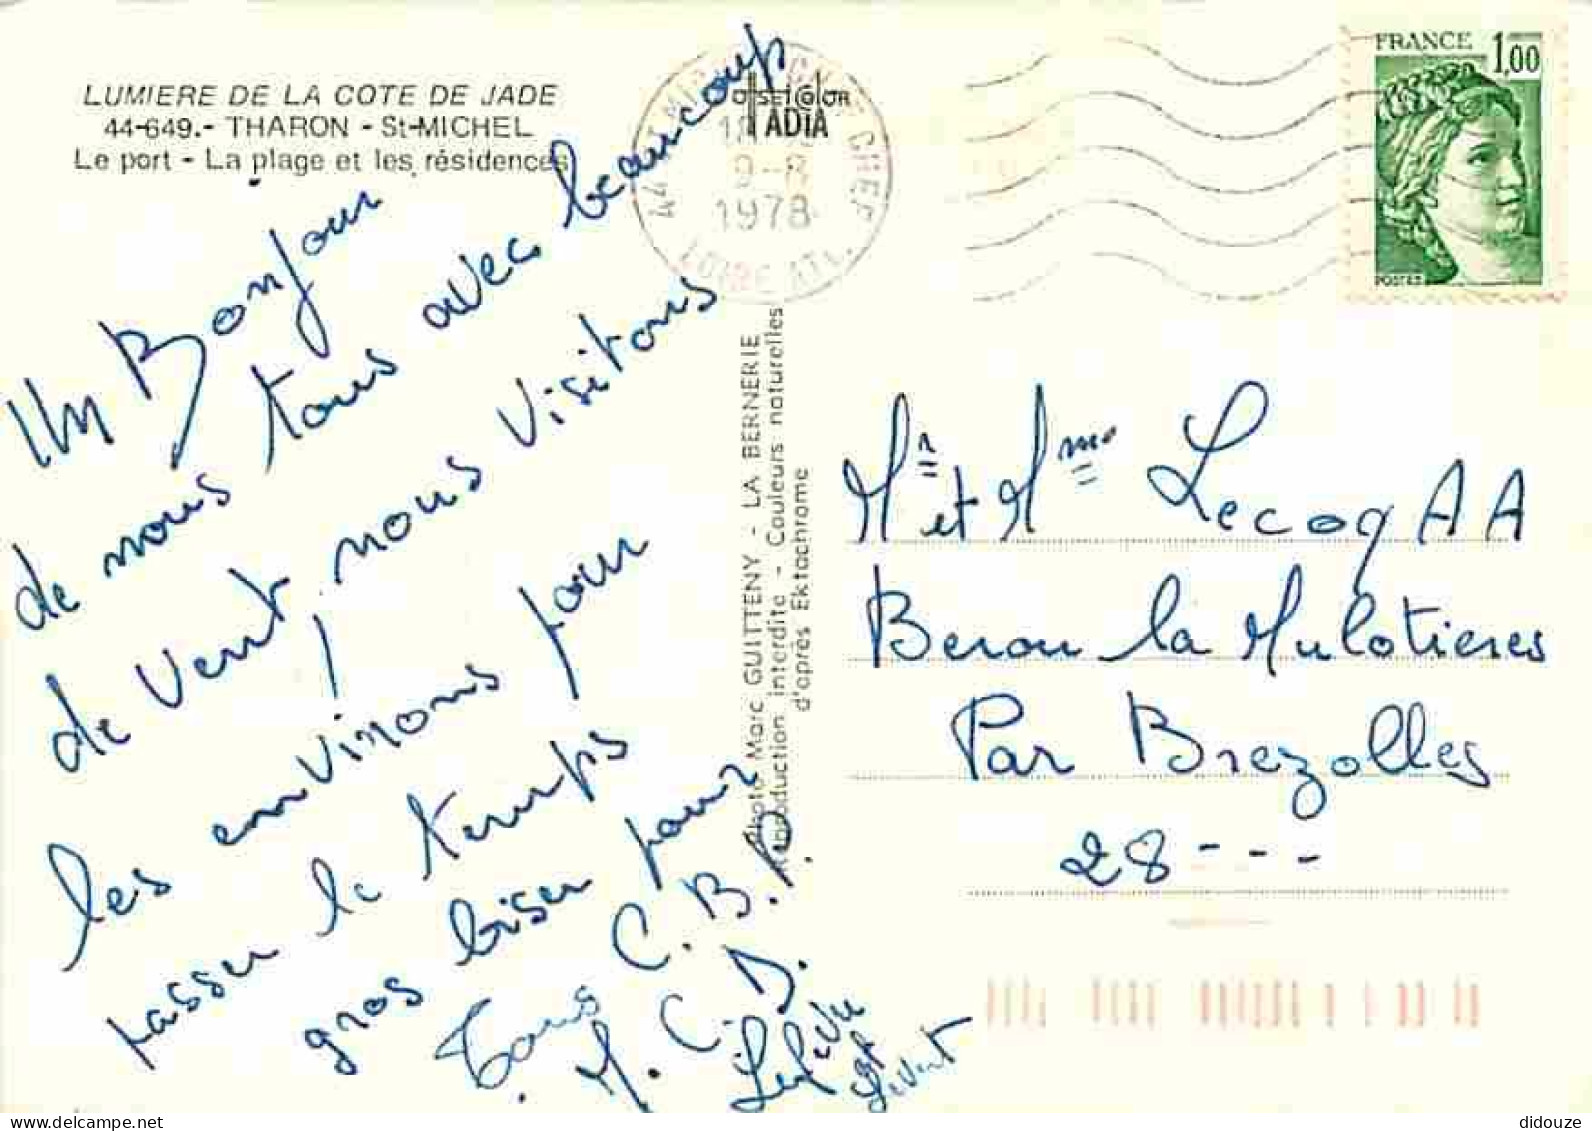 LUMIERE DE LA COTE DE JADE
44-649.- THARON - St-MICHEL
Le port - La plage et les résidences
Un Bonjour
de nous tous avec beaucoup
de Vent, nous visitons
les environs pour
passer le temps
gros biser pour
Tous C. B. P.
M. C. D.
Lefevre
et Levert
Photo Marc GUITTENY - LA BERNERIE
Reproduction interdite - Couleurs naturelles
d'après Ektachrome
1978
LOIRE ATL.
FRANCE 1,00
POSTES
Mr et Mme Lecoq A A
Berou la Mulotieres
Par Brezolles
28 - - -
didouze